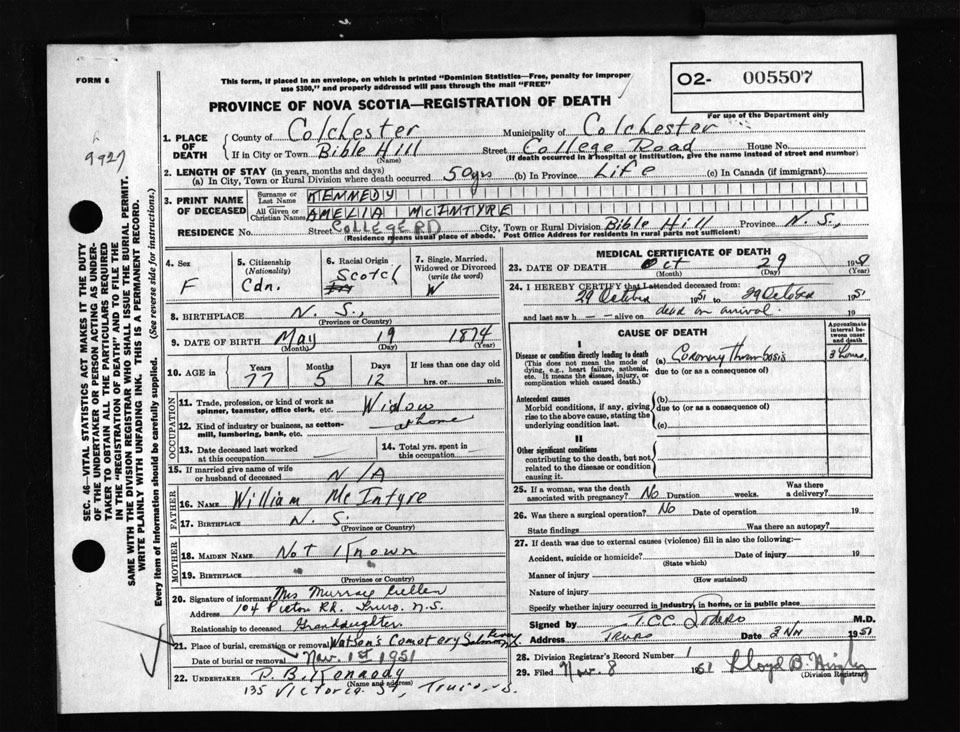 FORM 6
This form, if placed in an envelope, on which is printed "Dominion Statistics—Free, penalty for improper
use $300," and properly addressed will pass through the mail "FREE"
O2- 005507
For use of the Department only
PROVINCE OF NOVA SCOTIA—REGISTRATION OF DEATH
9927
1. PLACE OF DEATH
County of Colchester Municipality of Colchester
If in City or Town Bible Hill Street College Road House No.
(Name) (If death occurred in a hospital or institution, give the name instead of street and number)
2. LENGTH OF STAY (in years, months and days)
(a) In City, Town or Rural Division where death occurred 50 yrs (b) In Province Life (c) In Canada (if immigrant)
3. PRINT NAME OF DECEASED
Surname or Last Name KENNEDY
All Given or Christian Names AMELIA MCINTYRE
RESIDENCE No. Street COLLEGE RD City, Town or Rural Division Bible Hill Province N.S.,
(Residence means usual place of abode. Post Office Address for residents in rural parts not sufficient)
4. Sex F
5. Citizenship (Nationality) Cdn.
6. Racial Origin Scotch
7. Single, Married, Widowed or Divorced (write the word) W
8. BIRTHPLACE N.S.,
(Province or Country)
9. DATE OF BIRTH May 19 1874
(Month) (Day) (Year)
10. AGE in Years 77 Months 5 Days 12 If less than one day old hrs. or min.
OCCUPATION
11. Trade, profession, or kind of work as spinner, teamster, office clerk, etc. Widow
12. Kind of industry or business, as cotton-mill, lumbering, bank, etc. at home
13. Date deceased last worked at this occupation
14. Total yrs. spent in this occupation
15. If married give name of wife or husband of deceased N/A
FATHER
16. NAME William McIntyre
17. BIRTHPLACE N.S.
(Province or Country)
MOTHER
18. MAIDEN NAME Not Known
19. BIRTHPLACE " "
(Province or Country)
20. Signature of informant Mrs Murray
Address 104 Pictou Rd. Truro N.S.
Relationship to deceased Granddaughter
21. Place of burial, cremation or removal Watson's Cemetery Salmon
Date of burial or removal Nov. 1st 1951
22. UNDERTAKER P. B. Kennedy
(Name and address)
135 Victoria St, Truro N.S.
MEDICAL CERTIFICATE OF DEATH
23. DATE OF DEATH Oct 29 19
(Month) (Day) (Year)
24. I HEREBY CERTIFY that I attended deceased from:
29 October 1951 to 29 October 1951
and last saw h alive on dead on arrival. 19
CAUSE OF DEATH
Approximate interval between onset and death
I
Disease or condition directly leading to death
(This does not mean the mode of dying, e.g., heart failure, asthenia, etc. It means the disease, injury, or complication which caused death.)
(a) Coronary Thrombosis 3 hours.
due to (or as a consequence of)
Antecedent causes
Morbid conditions, if any, giving rise to the above cause, stating the underlying condition last.
(b)
due to (or as a consequence of)
(c)
II
Other significant conditions
contributing to the death, but not related to the disease or condition causing it.
25. If a woman, was the death associated with pregnancy? No Duration weeks. Was there a delivery?
26. Was there a surgical operation? No Date of operation 19
State findings Was there an autopsy?
27. If death was due to external causes (violence) fill in also the following:—
Accident, suicide or homicide? Date of injury 19
(State which)
Manner of injury
(How sustained)
Nature of injury
Specify whether injury occurred in industry, in home, or in public place
Signed by T.C.C. M.D.
Address Truro Date 3 Nov 1951
28. Division Registrar's Record Number 1
29. Filed Nov. 8 1951 Lloyd B.
(Division Registrar)
SEC. 46—VITAL STATISTICS ACT MAKES IT THE DUTY
OF THE UNDERTAKER OR PERSON ACTING AS UNDER-
TAKER TO OBTAIN ALL THE PARTICULARS REQUIRED
IN THE "REGISTRATION OF DEATH" AND TO FILE THE
SAME WITH THE DIVISION REGISTRAR WHO SHALL ISSUE THE BURIAL PERMIT.
WRITE PLAINLY WITH UNFADING INK. THIS IS A PERMANENT RECORD.
Every item of Information should be carefully supplied. (See reverse side for instructions.)